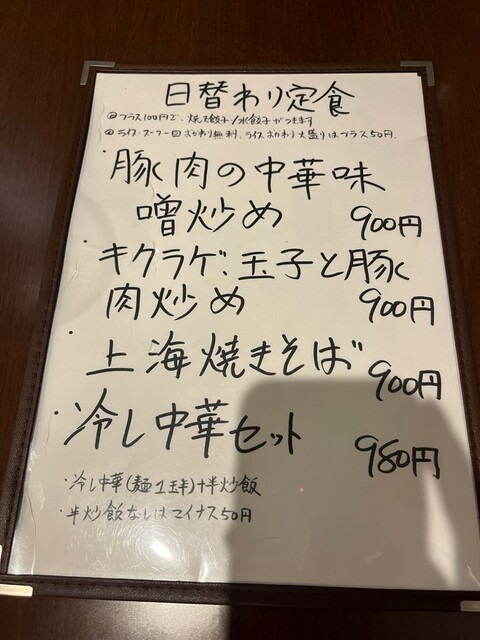 日替わり定食
◎プラス100円で、焼き餃子/水餃子がつきます
◎ライス・スープ一回おかわり無料、ライスおかわり大盛りはプラス50円.
・豚肉の中華味
噌炒め 900円
・キクラゲ、玉子と豚
肉炒め 900円
・上海焼きそば 900円
・冷し中華セット 980円
・冷し中華(麺1玉半)+半炒飯
・半炒飯なしはマイナス50円